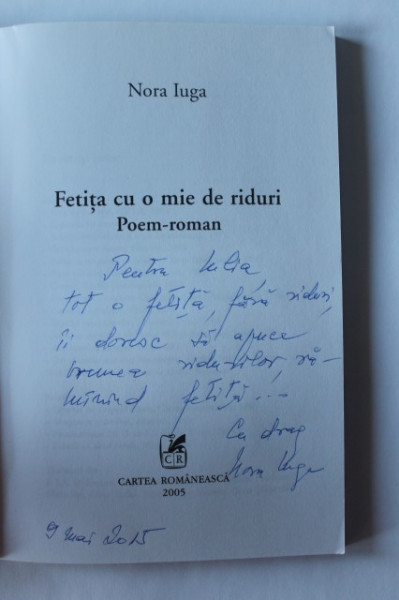 Nora Iuga
Fetița cu o mie de riduri
Poem-roman
Pentru Iulia,
tot o fetiță, fără riduri,
îi doresc să apuce
vremea ridurilor, ră-
mînînd fetiță...
Cu drag
Nora Iuga
CR
CARTEA ROMÂNEASCĂ
2005
9 mai 2015